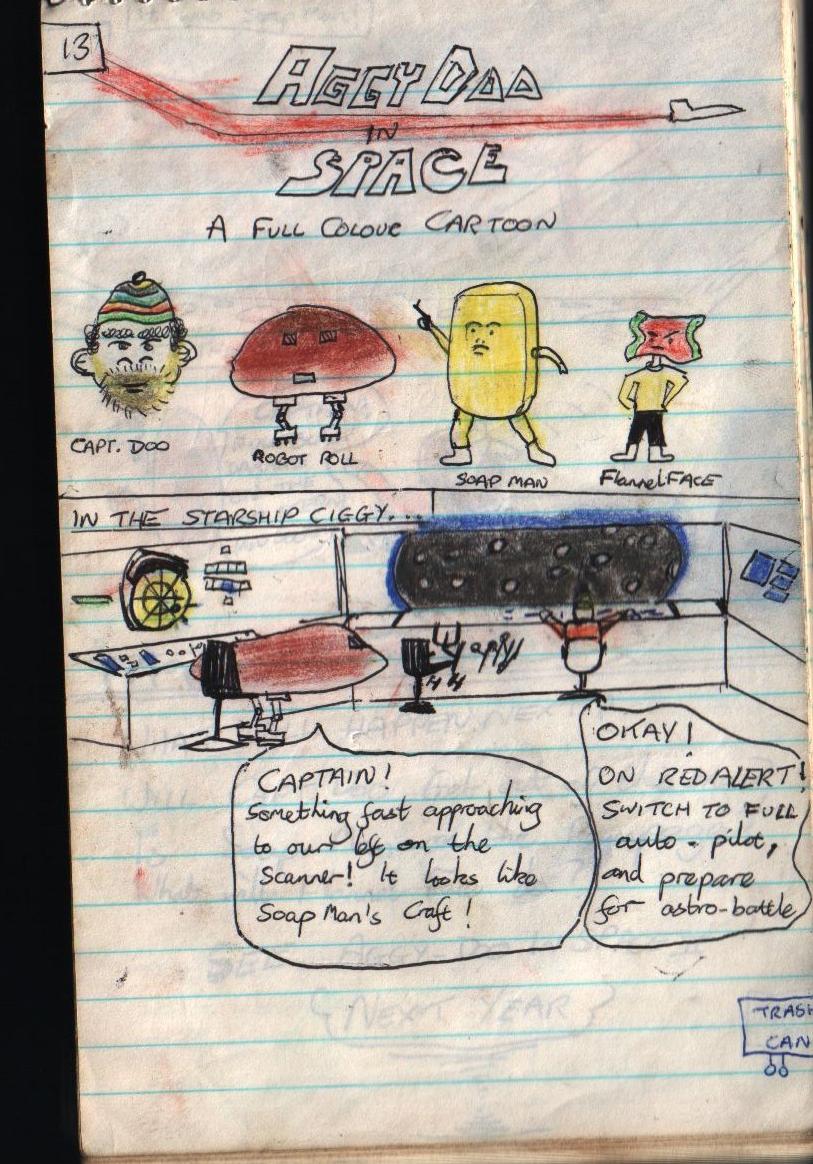 13
AGGY DOO
IN
SPACE
A FULL COLOUR CARTOON
CAPT. DOO
ROBOT ROLL
SOAP MAN
FlannelFACE
IN THE STARSHIP CIGGY...
CAPTAIN!
Something fast approaching
to our left on the
Scanner! It looks like
Soap Man's Craft!
OKAY!
ON RED ALERT!
SWITCH TO FULL
auto-pilot,
and prepare
for astro-battle
TRASH
CAN
HAPPEN NEXT
SEE AGGY DOO IN SPACE II
{NEXT YEAR}